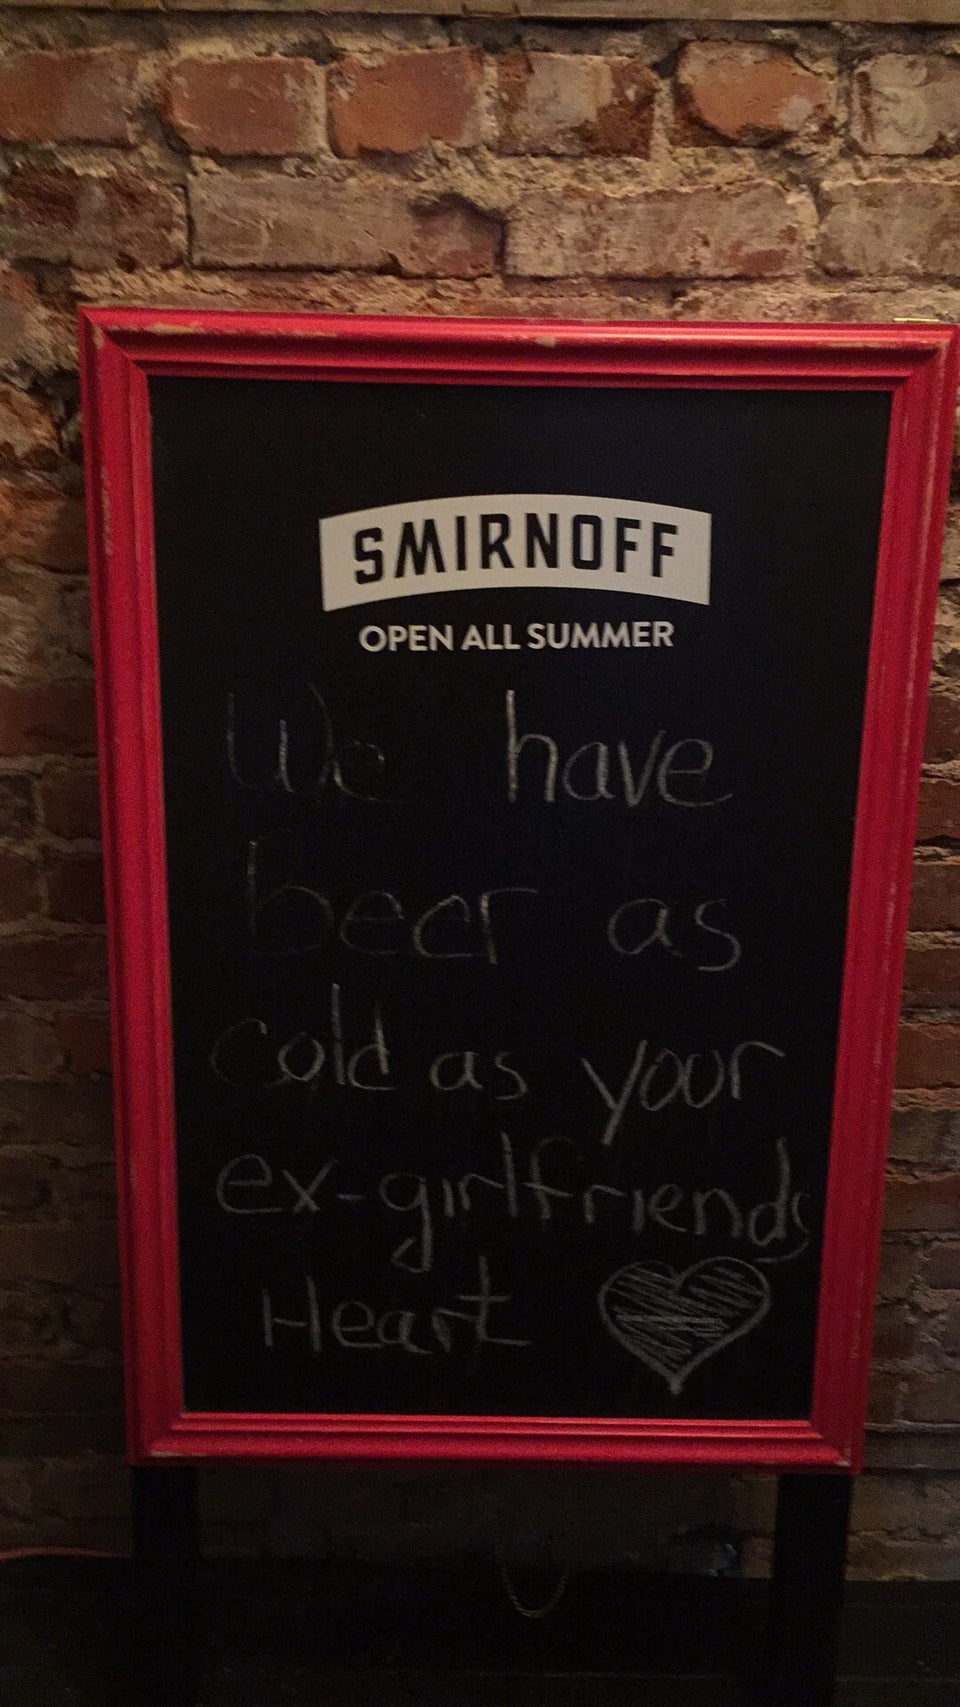 SMIRNOFF
OPEN ALL SUMMER
We have
beer as
cold as your
ex-girlfriends
Heart